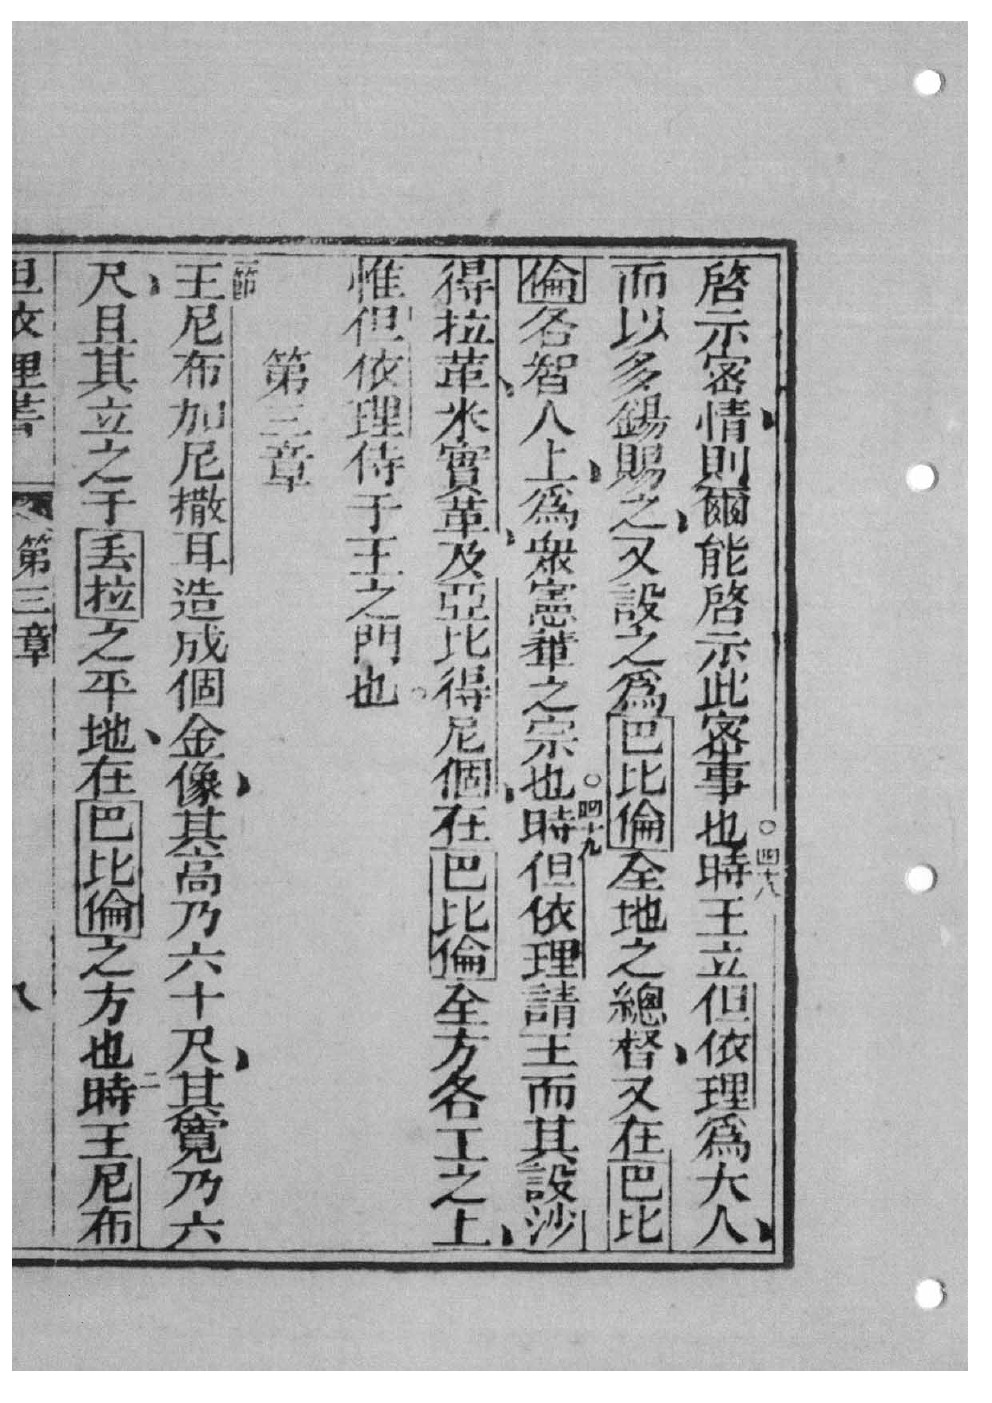 啓示密情則爾能啓示此密事也○四十八時王立但依理爲大人
而以多錫賜之又設之爲巴比倫全地之總督又在巴比
倫各智人上爲衆憲輩之宗也○四十九時但依理請王而其設沙
得拉革米實革及亞比得尼個在巴比倫全方各工之上
惟但依理侍于王之門也。
第三章
一節王尼布加尼撒耳造成個金像其高乃六十尺其寬乃六
尺且其立之于丟拉之平地在巴比倫之方也二時王尼布
但依理書 第三章 八